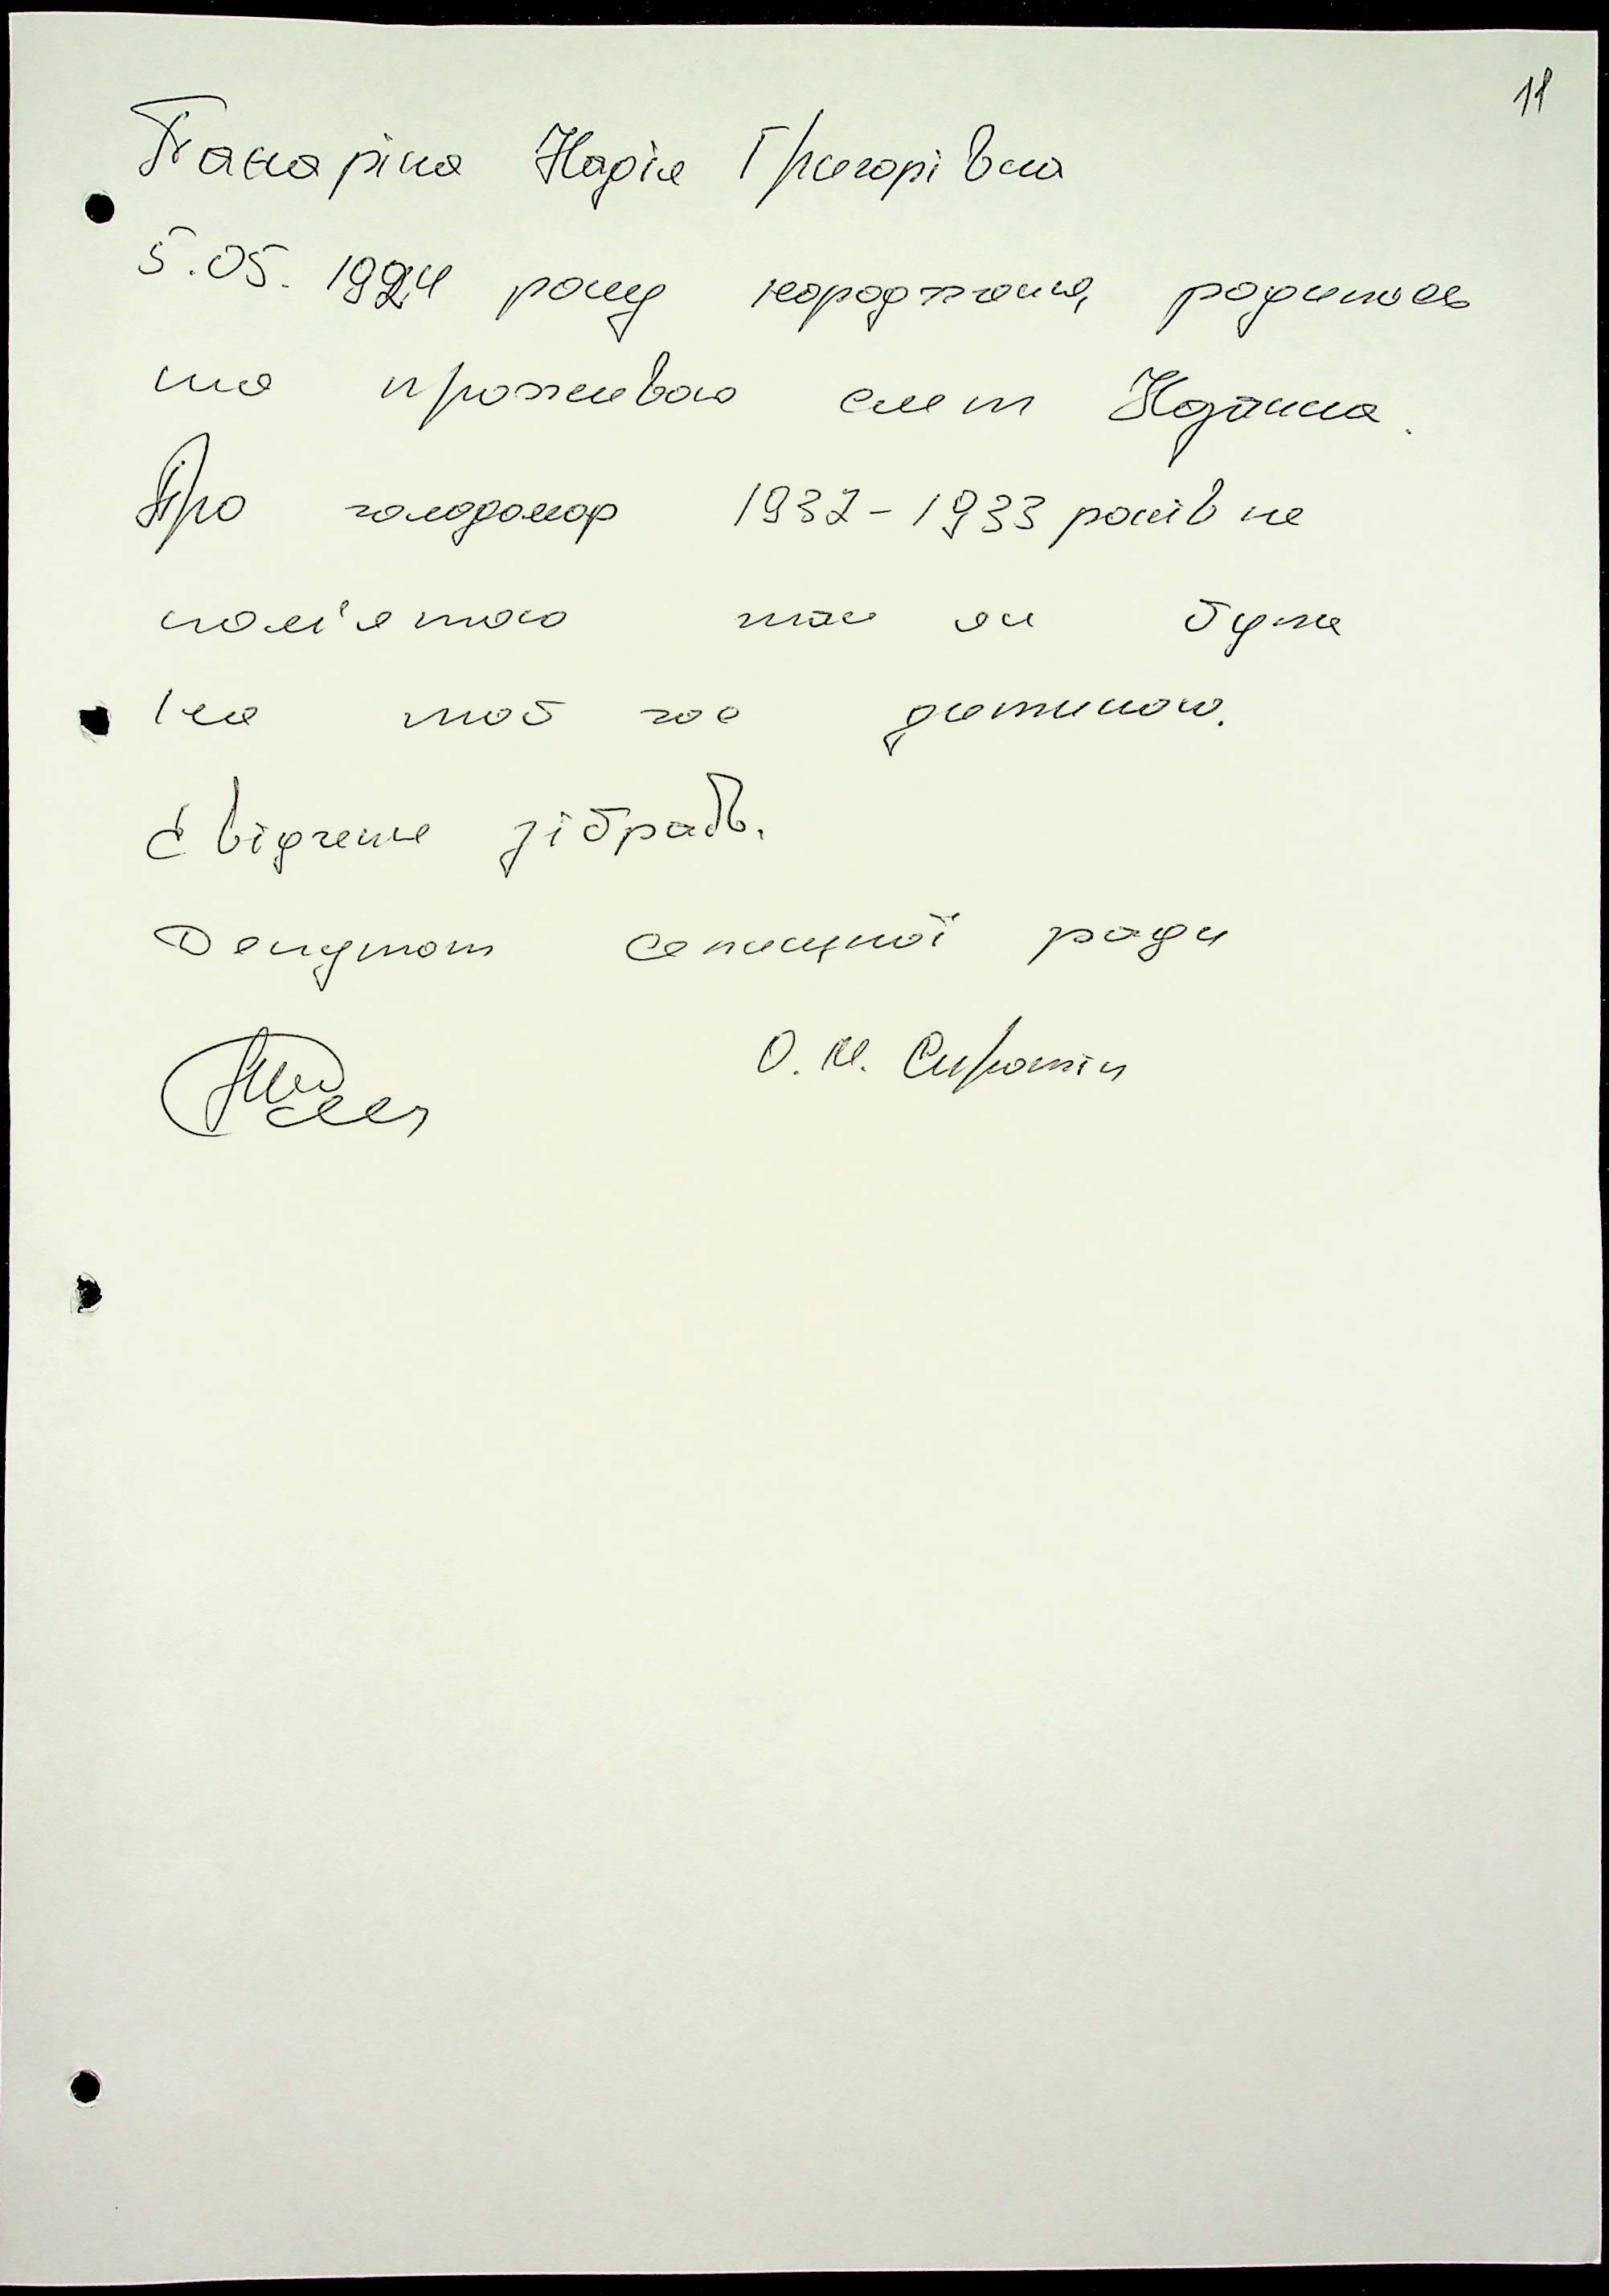 11
Панаріна Надія Григорівна
5.05. 1924 року народження, родилась
та проживаю смт Жданівка.
Про голодомор 1932-1933 років не
пам'ятаю так як була
на той час дитиною.
Свідчення зібрав.
Депутат селищної ради
О. М. Сиротін